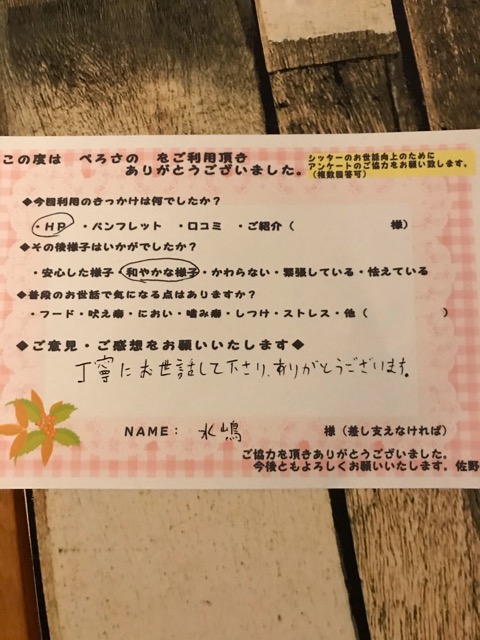 この度は ぺろさの をご利用頂き
ありがとうございました。
シッターのお世話向上のために
アンケートのご協力をお願い致します。
（複数回答可）
◆今回利用のきっかけは何でしたか？
・HP ・パンフレット ・口コミ ・ご紹介（ 様）
◆その後様子はいかがでしたか？
・安心した様子・和やかな様子・かわらない・緊張している・怯えている
◆普段のお世話で気になる点はありますか？
・フード・吠え癖・におい・噛み癖・しつけ・ストレス・他（ ）
◆ご意見・ご感想をお願いいたします◆
丁寧にお世話して下さり、ありがとうございます。
NAME： 水嶋 様（差し支えなければ）
ご協力を頂きありがとうございました。
今後ともよろしくお願いいたします。佐野